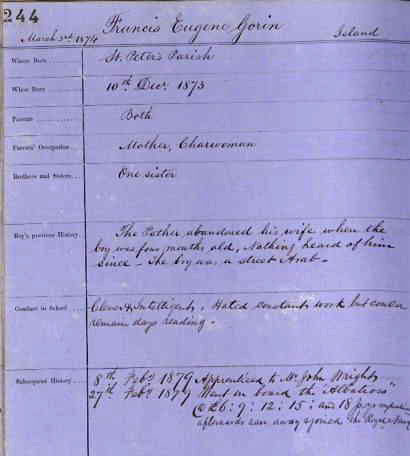 244
Francis Eugene Gorin
March 3rd 1874 Island
Where Born St. Peter's Parish
When Born 10th Decr. 1873
Parents Both
Parents' Occupation Mother, Charwoman
Brothers and Sisters One sister
Boy's previous History The Father abandoned his wife when the
boy was four months old, Nothing heard of him
since - The boy was a street Arab.
Conduct in School Clever & Intelligent, Hated constant work but could
remain days reading.
Subsequent History 8th Feby 1879 Apprenticed to Mr John Wright
27th Feby 1879 Went on board the "Albatross"
@ £6 : 9 : 12 : 15 : and 18
afterwards ran away & joined the Royal Navy